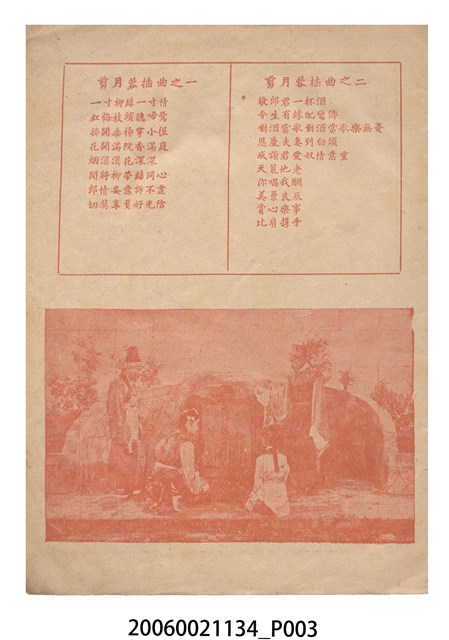 剪月蓉插曲之一
一寸柳絲一寸情
紅梅枝頭聽啼鶯
楊開垂楊穿小徑
花開滿院香滿庭
烟濃濃花深深
閒將柳葉結同心
郎情妾意兩不盡
切莫辜負好光陰
剪月蓉插曲之二
敬郎君一杯酒
今生有緣配鸞儔
對酒當歌對酒當歌樂無憂
恩愛夫妻到白頭
感謝君愛奴情意重
天荒地老
你唱我酬
美景良辰
賞心樂事
比肩携手
20060021134_P003